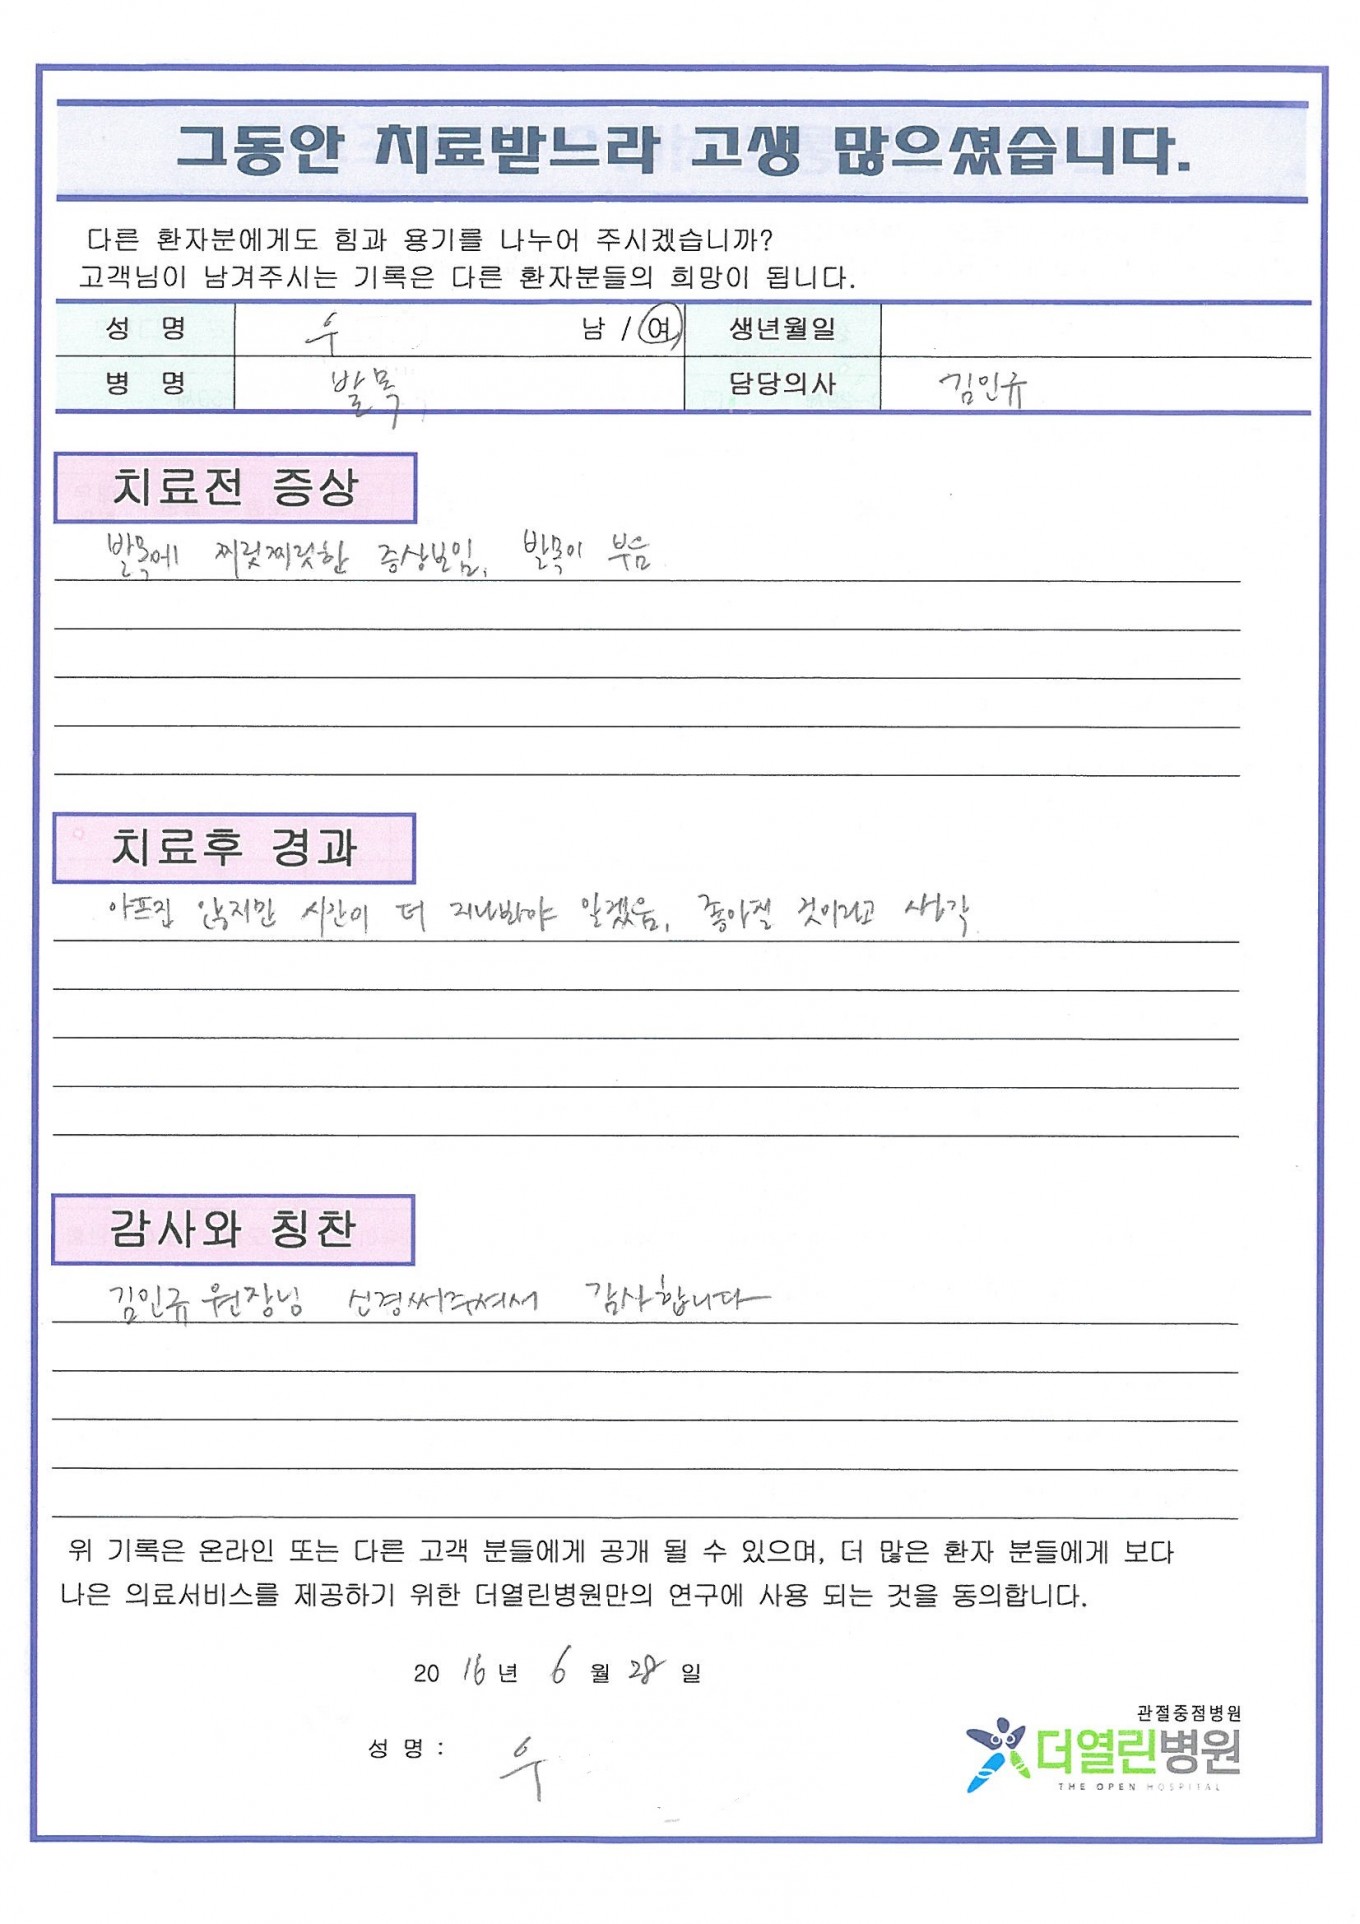 그동안 치료받느라 고생 많으셨습니다.
다른 환자분에게도 힘과 용기를 나누어 주시겠습니까?
고객님이 남겨주시는 기록은 다른 환자분들의 희망이 됩니다.
성 명 우 남 / 여 생년월일
병 명 발목 담당의사 김인규
치료전 증상
발목에 찌릿찌릿한 증상보임, 발목이 부음
치료후 경과
아프진 않지만 시간이 더 지나봐야 알겠음, 좋아질 것이라고 생각
감사와 칭찬
김인규 원장님 신경써주셔서 감사합니다
위 기록은 온라인 또는 다른 고객 분들에게 공개 될 수 있으며, 더 많은 환자 분들에게 보다
나은 의료서비스를 제공하기 위한 더열린병원만의 연구에 사용 되는 것을 동의합니다.
20 16 년 6 월 28 일
성 명 : 우
관절중점병원
더열린병원
THE OPEN HOSPITAL